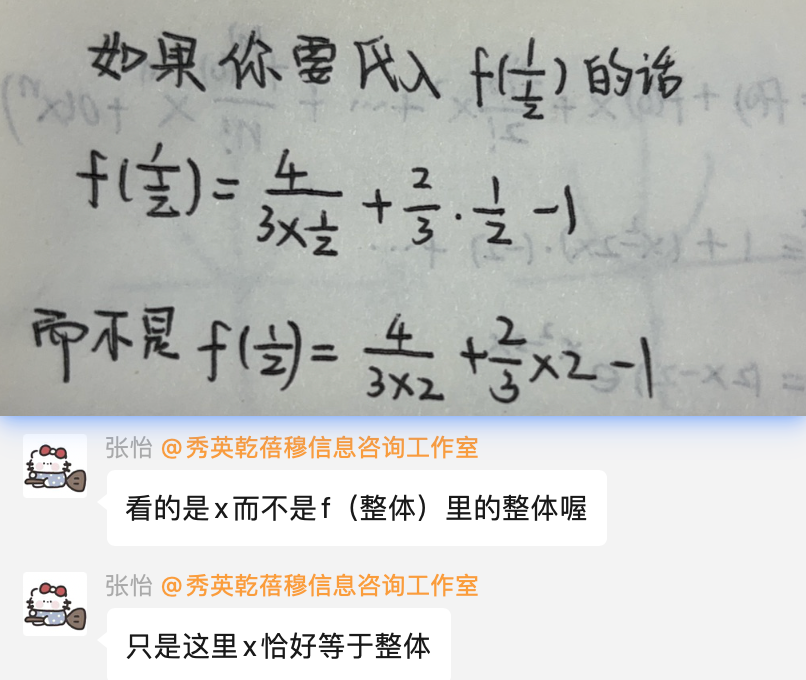 如果你要代入 f(1/(1/2)) 的话
f(1/(1/2)) = 4/(3×1/2) + 2/3 · 1/2 - 1
而不是 f(1/2) = 4/(3×2) + 2/3 × 2 - 1
张怡 @秀英乾蓓穆信息咨询工作室
看的是x而不是f（整体）里的整体喔
张怡 @秀英乾蓓穆信息咨询工作室
只是这里x恰好等于整体